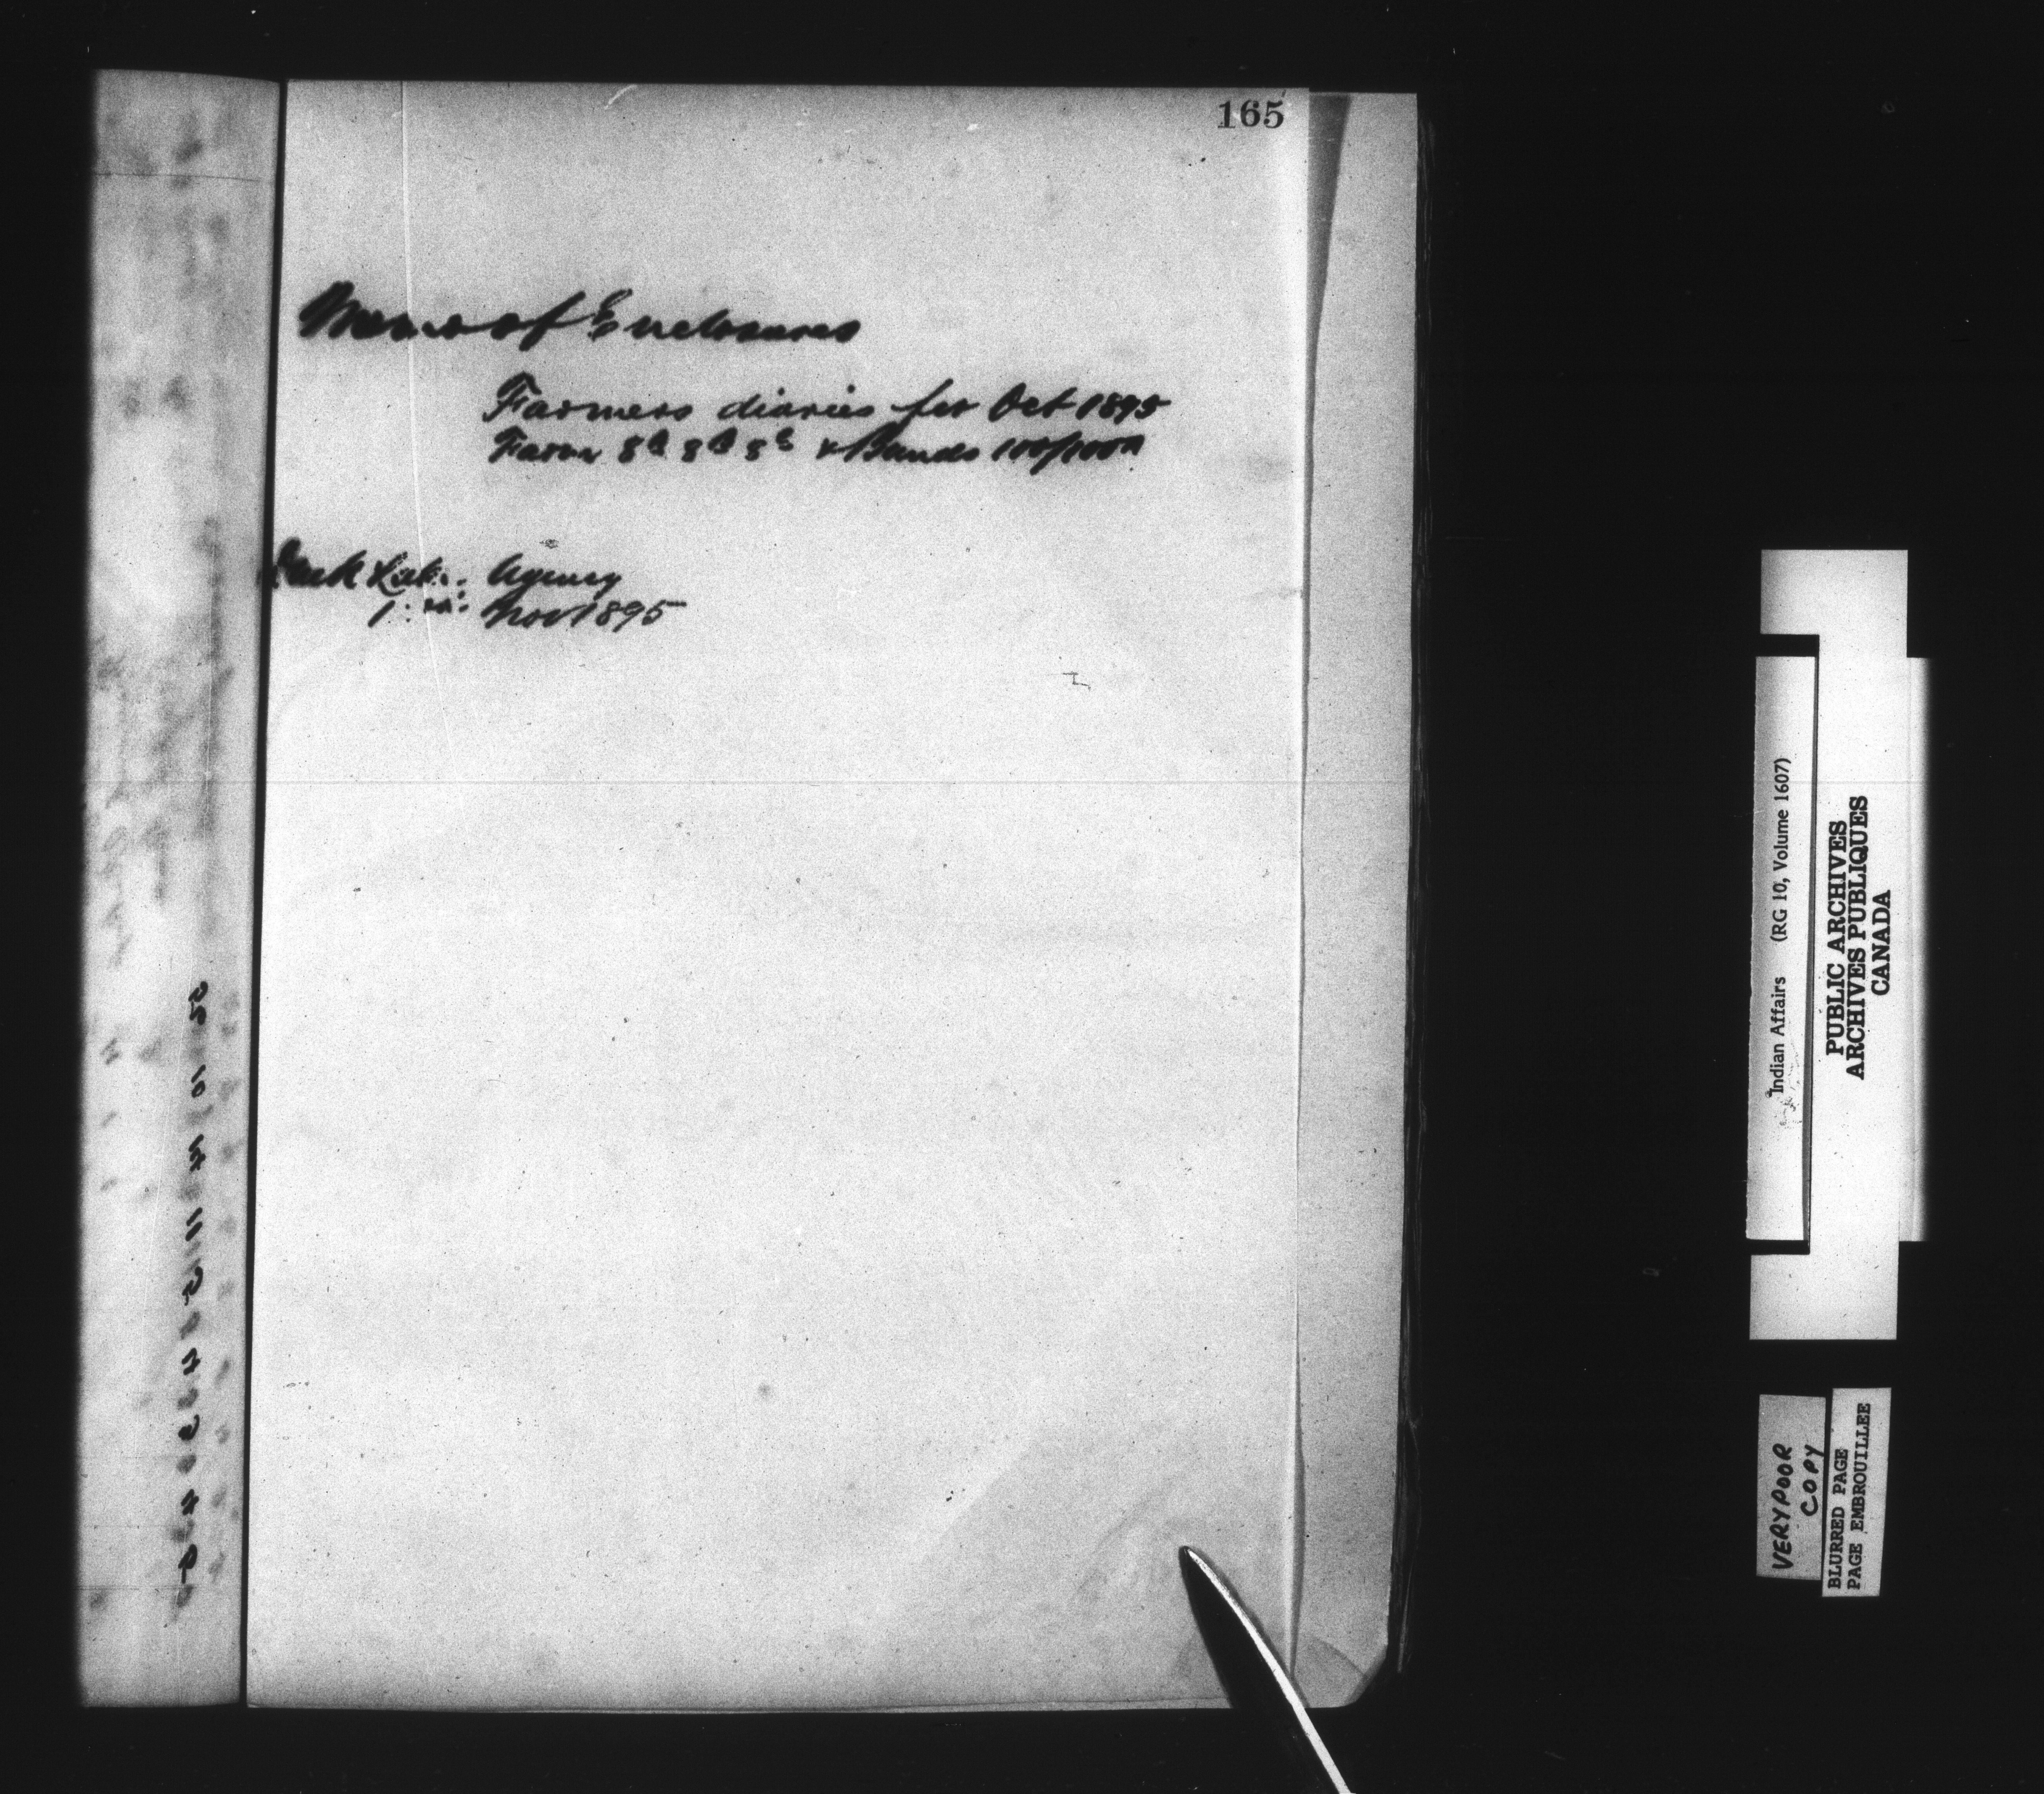 165
Memo of Enclosures
Farmers diaries for Oct 1895
Farm 8A 8B 8C & Bands
Duck Lake Agency
1st Nov 1895
Indian Affairs (RG 10, Volume 1607)
PUBLIC ARCHIVES
ARCHIVES PUBLIQUES
CANADA
VERY POOR
COPY
BLURRED PAGE
PAGE EMBROUILLEE